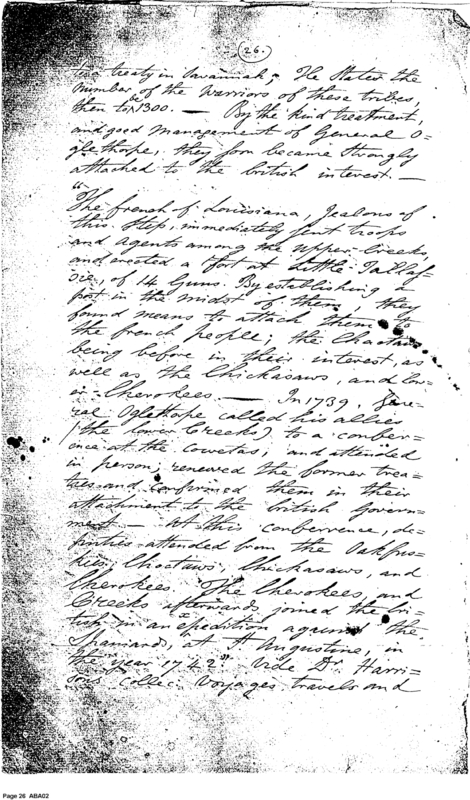 (26.)
tive treaty in Savannah. He states the
number of the Warriors of these tribes,
then to be 1300. — By the kind treatment,
and good management of General O=
glethorpe, they soon became strongly
attached to the british interest. —
"The french of Louisiana, jealous of
this step, immediately sent troops
and agents among the upper-Creeks,
and erected a fort at Little-Tallas=
see, of 14 Guns. By establishing a
post in the midst of them, they
found means to attach them to
the french people; the Choctaws
being before in their interest, as
well as the Chickasaws, and Low=
er-Cherokees. — In 1739, Gene=
ral Oglethorpe called his allies
(the lower Creeks) to a confer=
ence at the Cowetas, and attended
in person; renewed the former trea=
ties and confirmed them in their
attachment to the british Govern=
ment — At this conferrence, de=
puties attended from the Oakfus=
kies, Choctaws, Chickasaws, and
Cherokees. The Cherokees, and
Creeks afterwards joined the bri=
tish in an expedition against the
Spaniards, at St Augustine, in
the year 1742" Vide Dr. Harri=
sons collec. Voyages travels and
Page 26 ABA02